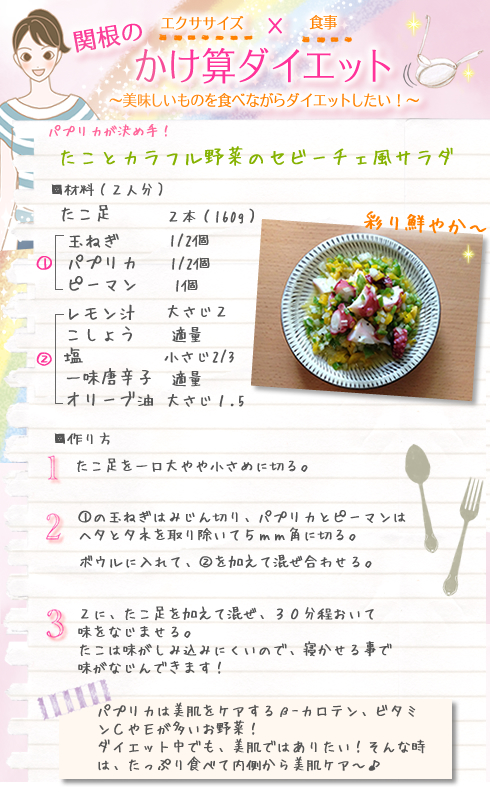 エクササイズ × 食事
関根の
かけ算ダイエット
～美味しいものを食べながらダイエットしたい！～
パプリカが決め手！
たことカラフル野菜のセビーチェ風サラダ
■材料（２人分）
たこ足 ２本（160g）
彩り鮮やか～
①
玉ねぎ 1/2個
パプリカ 1/2個
ピーマン 1個
②
レモン汁 大さじ２
こしょう 適量
塩 小さじ2/3
一味唐辛子 適量
オリーブ油 大さじ１.５
■作り方
1 たこ足を一口大やや小さめに切る。
2 ①の玉ねぎはみじん切り、パプリカとピーマンは
ヘタとタネを取り除いて５ｍｍ角に切る。
ボウルに入れて、②を加えて混ぜ合わせる。
3 ２に、たこ足を加えて混ぜ、３０分程おいて
味をなじませる。
たこは味がしみ込みにくいので、寝かせる事で
味がなじんできます！
パプリカは美肌をケアするβ-カロテン、ビタミ
ンＣやＥが多いお野菜！
ダイエット中でも、美肌ではありたい！そんな時
は、たっぷり食べて内側から美肌ケア～♪